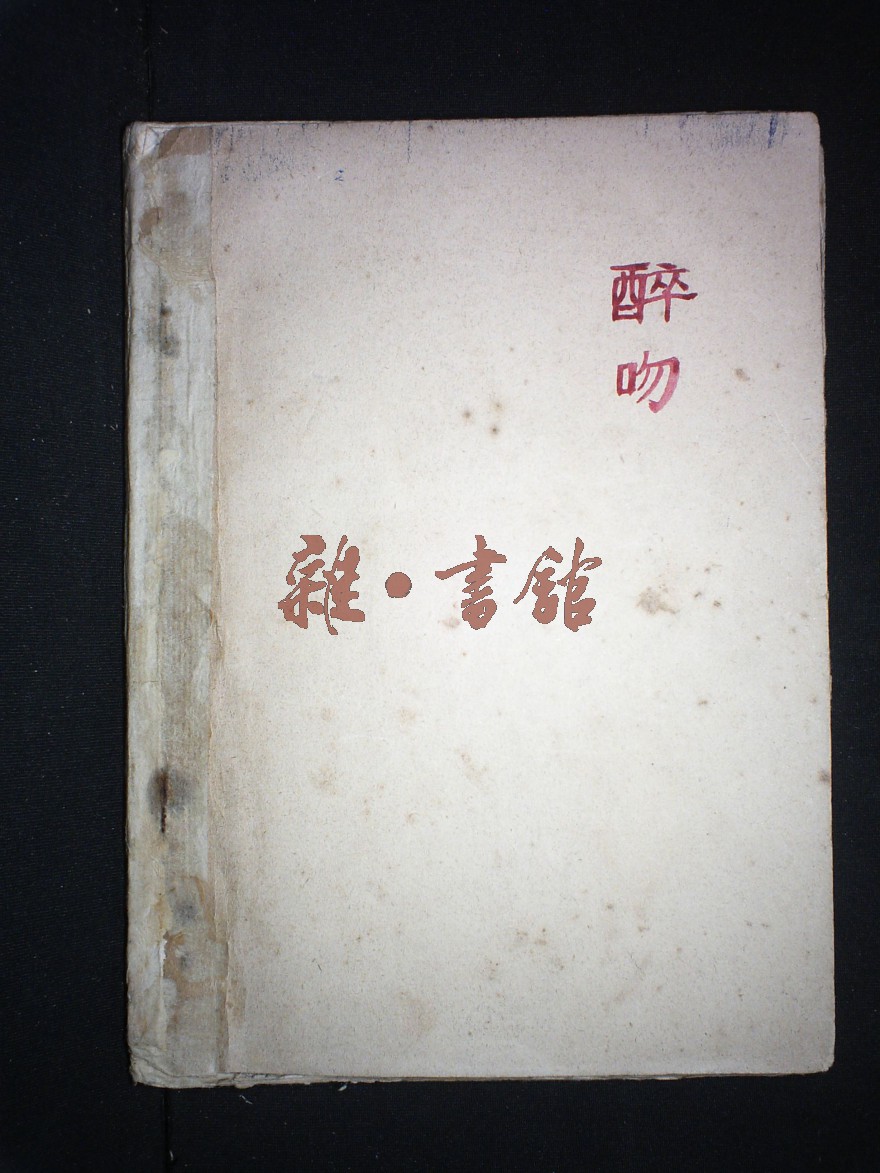 醉
吻
雜·書館